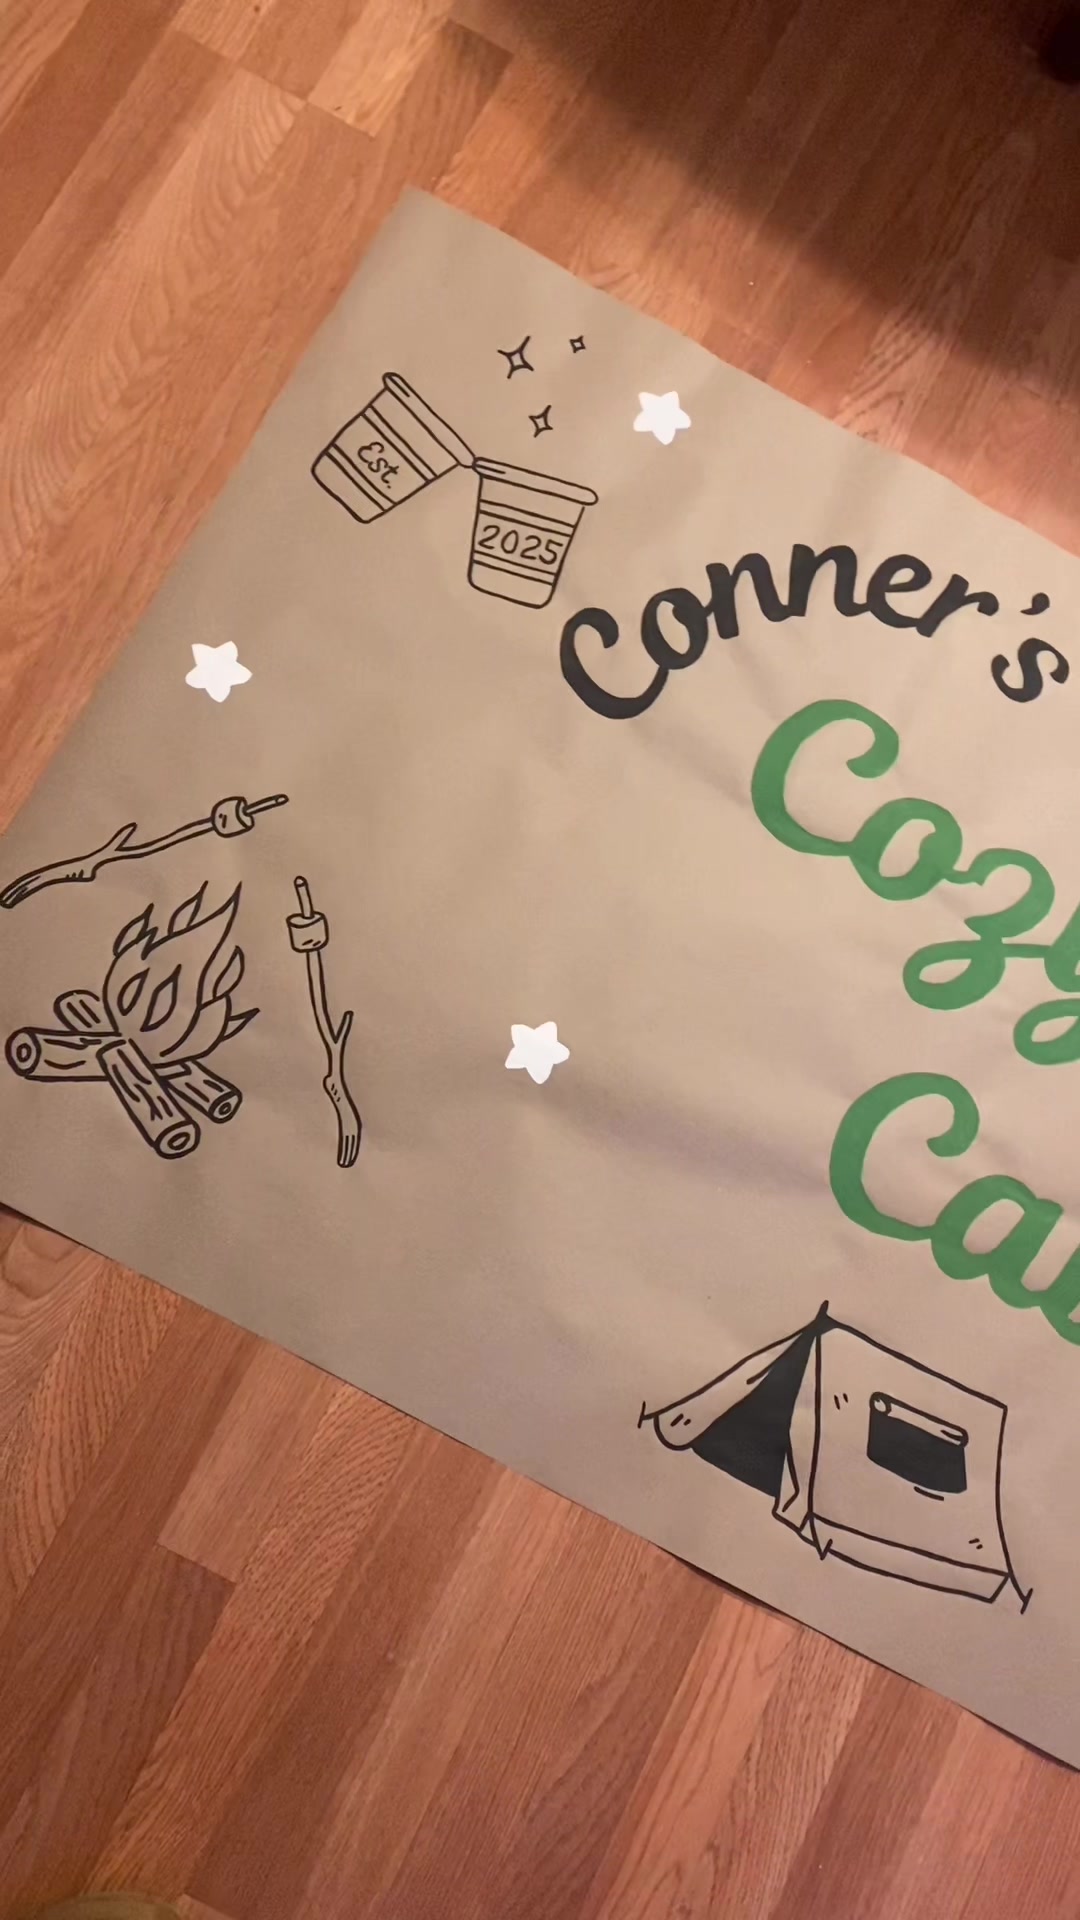 Est.
2025
Conner's
Cozy